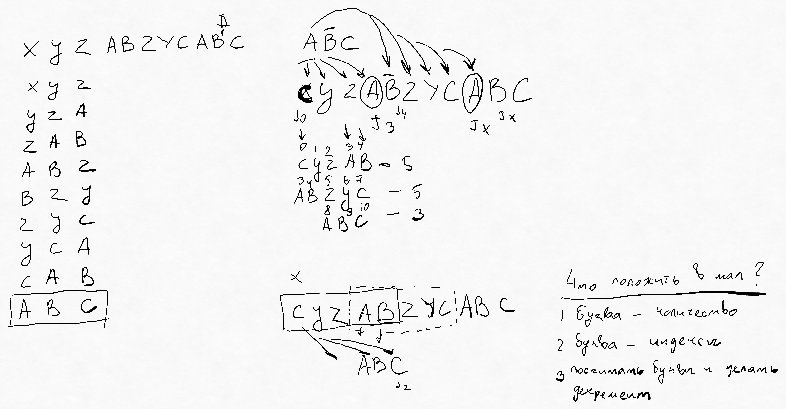 X y Z A B Z Y C A B C
x y z
y z A
z A B
A B z
B z y
z y C
y C A
C A B
A B C
A B C
C y Z A B Z Y C A B C
J0 J3 J4 Jx Jx
0 1 2 3 4
C y z A B - 5
3 4 5 6 7
A B Z y C - 5
8 9 10
A B C - 3
x
C y z A B Z Y C A B C
A B C
J2
Что положить в мап ?
1 Буква - количество
2 буква - индексы
3 посчитать буквы и делать
декремент